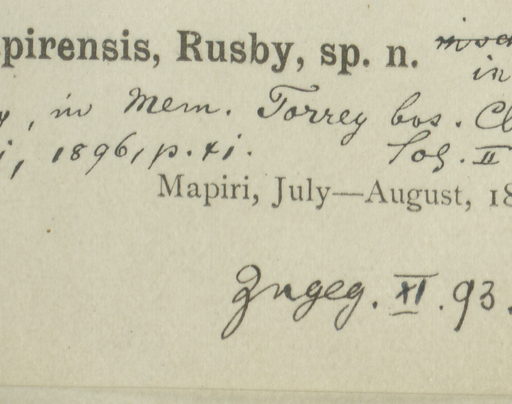 pirensis, Rusby, sp. n.
in
y, in Mem. Torrey bos. Cl
i, 1896, p. xi. Tog. II
Mapiri, July—August, 18
Zugeg. XI. 93.